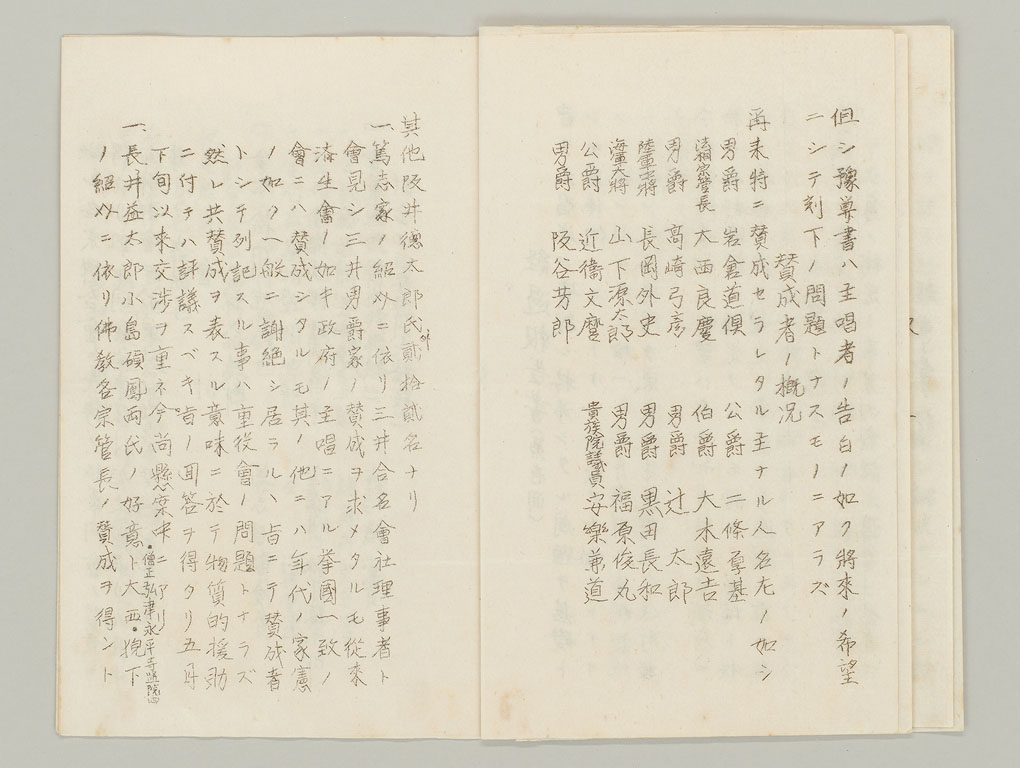 但シ豫算書ハ主唱者ノ告白ノ如ク將來ノ希望
ニシテ刻下ノ問題トナスモノニアラズ
賛成者ノ概況
再来特ニ賛成セラレタル主ナル人名左ノ如シ
男爵 岩倉道倶 公爵 二條厚基
法相宗管長 大西良慶 伯爵 大木遠吉
男爵 高崎弓彦 男爵 辻太郎
陸軍中將 長岡外史 男爵 黒田長和
海軍大將 山下源太郎 男爵 福原俊丸
公爵 近衞文麿 貴族院議員 安樂兼道
男爵 阪谷芳郎
其他阪井德太郎氏外貳拾貳名ナリ
一、篤志家ノ紹介ニ依リ三井合名會社理事者ト
會見シ三井男爵家ノ賛成ヲ求メタルモ從來
済生會ノ如キ政府ノ主唱ニアル挙國一致ノ
會ニハ賛成シタルモ其ノ他ニハ年代ノ家憲
ノ如ク一般ニ謝絶シ居ラルヽ旨ニテ賛成者
トシテ列記スル事ハ重役會ノ問題トナラズ
然レ共賛成ヲ表スル意味ニ於テ物質的援助
ニ付テハ評議スベキ旨ノ回答ヲ得タリ五月
下旬以來交渉ヲ重ネ今尚懸案中ニアリ
一、長井益太郎小島碩鳳両氏ノ好意ト大西、僧正弘津永平寺監院、猊下
ノ紹介ニ依リ佛教各宗管長ノ賛成ヲ得ント